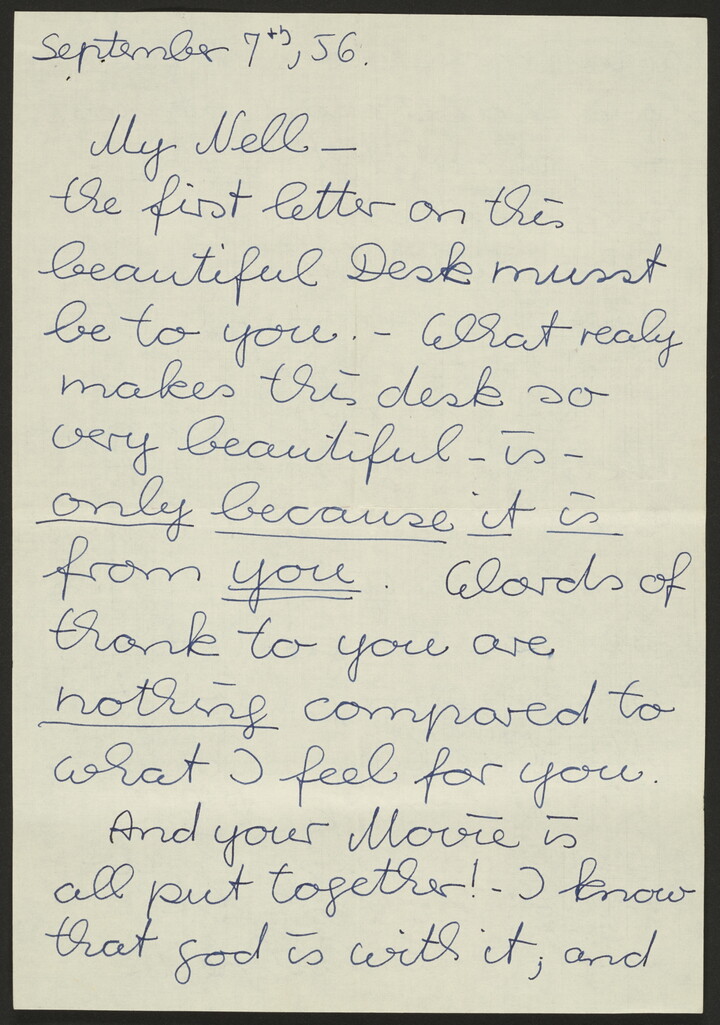 September 7th, 56.
My Nell —
the first letter on this
beautiful Desk musst
be to you. - What realy
makes this desk so
very beautiful - is -
only because it is
from you. Words of
thank to you are
nothing compared to
what I feel for you.
And your Movie is
all put together! - I know
that god is with it; and